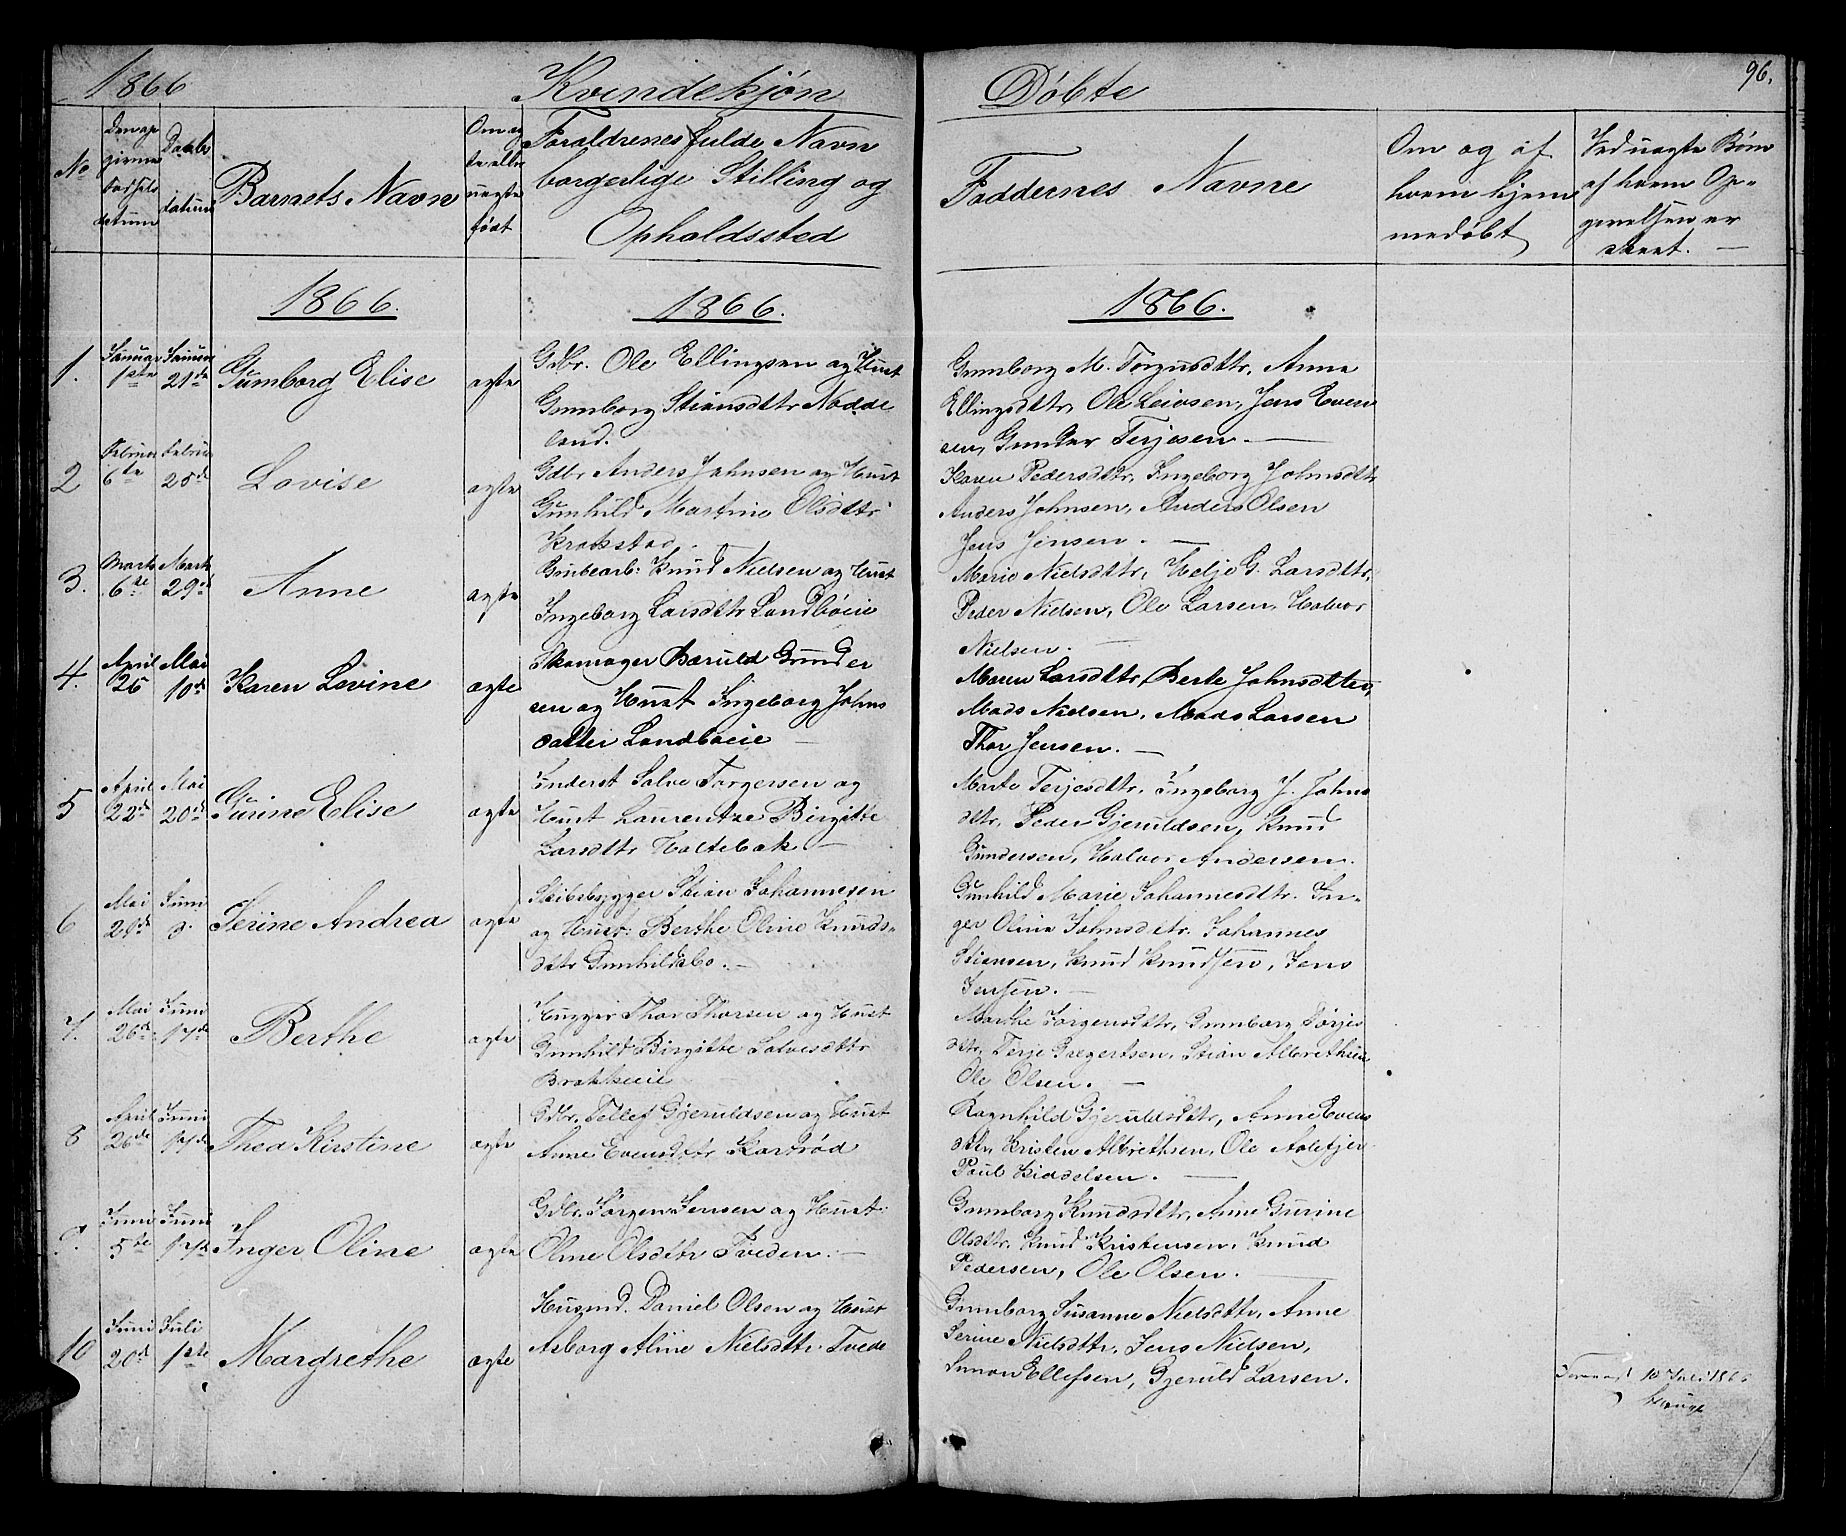 1866 Kvindekjøn Døbte 96.
No
Den op
givne
Fødsels
datum
Daabs
datum
Barnets Navn
Om æg
te eller
uægte
født
Forældrenes fulde Navn
borgerlige Stilling og
Opholdssted
Faddernes Navne
Om og af
hvem hjem
medøbt
Ved uægte Børn
af hvem Op-
givelsen er
skeet. —
1866. 1866. 1866.
1. Januar 1ste Januar 21de Gumborg Elise ægte
Gdbr. Ole Ellingsen og Hust
Gunborg Stiansdttr Nødde
land.
Gunnborg M. Torgusdttr, Anne
Ellingsdttr, Ole Leivsen, Jens Even
sen, Gunder Terjesen. —
2 Februar 6te Februar 25de Lovise ægte
Gdbr Anders Johnsen og Hust
Gunhild Martine Olsdttr
Krokstad.
Karen Pedersdttr, Ingeborg Johnsdttr
Anders Johnsen, Anders Olsen
Jens Jensen. —
3. Marts 6te Marts 29de Anne ægte
Grubearb: Knud Nielsen og Hust
Ingeborg Larsdttr Landbøeie
Marie Nielsdttr, Helje G. Larsdttr,
Peder Nielsen, Ole Larsen, Halvor
Nielsen. —
4. April 26 Mai 10de Karen Lovine ægte
Skomager Baruld Gunder
sen og Hust Ingeborg Johns
datter Landbøeie —
Maren Larsdttr, Berte Johnsdtter,
Mads Nielsen, Mads Larsen
Thor Jensen. —
5 April 22de Mai 20de Gurine Elise ægte
Inderst Salve Torgersen og
Hust Laurentze Birgitte
Larsdttr Holtebæk —
Marte Terjesdttr, Ingeborg J. Johns
dttr, Peder Gjeruldsen, Knud
Gundersen, Halvor Andersen.
6 Mai 21de Juni 3. Serine Andrea ægte
Skibsbygger Stian Johannesen
og Hust: Berthe Oline Knuds-
dttr Gunhildsbo. —
Gunhild Marie Johannesdttr. In-
ger Oline Johnsdttr. Johannes
Stiansen, Knud Knudsen, Jens
Jensen. —
7. Mai 26de Juni 17de Berthe ægte
Hugger Thor Thorsen og Hust
Gunhild Birgitte Salvesdttr
Brækkeeie
Marthe Jørgensdttr, Gunnborg Tørjes
dttr, Terje Gregertsen, Stian Albrethsen
Ole Olsen. —
8 April 26de Juni 17de Thea Kirstine ægte
Gdbr. Tellef Gjeruldsen og Hust
Anne Evensdttr Kartrød
Ragnhild Gjeruldsdttr, Anne Evens
dttr, Kristen Albrethsen, Ole Aalefjer
Poul Kiddelsen. —
9. Juni 5te Juni 17de Inger Oline ægte
Gdbr. Jørgen Jensen og Hust:
Oline Olsdttr Tveden. —
Gunnborg Knudsdttr, Anne Gurine
Olsdttr, Knud Kristensen, Knud
Pedersen, Ole Olsen. —
10 Juni 20de Juli 1ste Margrethe ægte
Husmd. Daniel Olsen og Hust
Asborg Aline Nielsdttr Tvede
Gunnborg Susanne Nielsdttr, Anne
Serine Nielsdttr, Jens Nielsen,
Simon Ellefsen, Gjeruld Larsen.
10 Juli 186